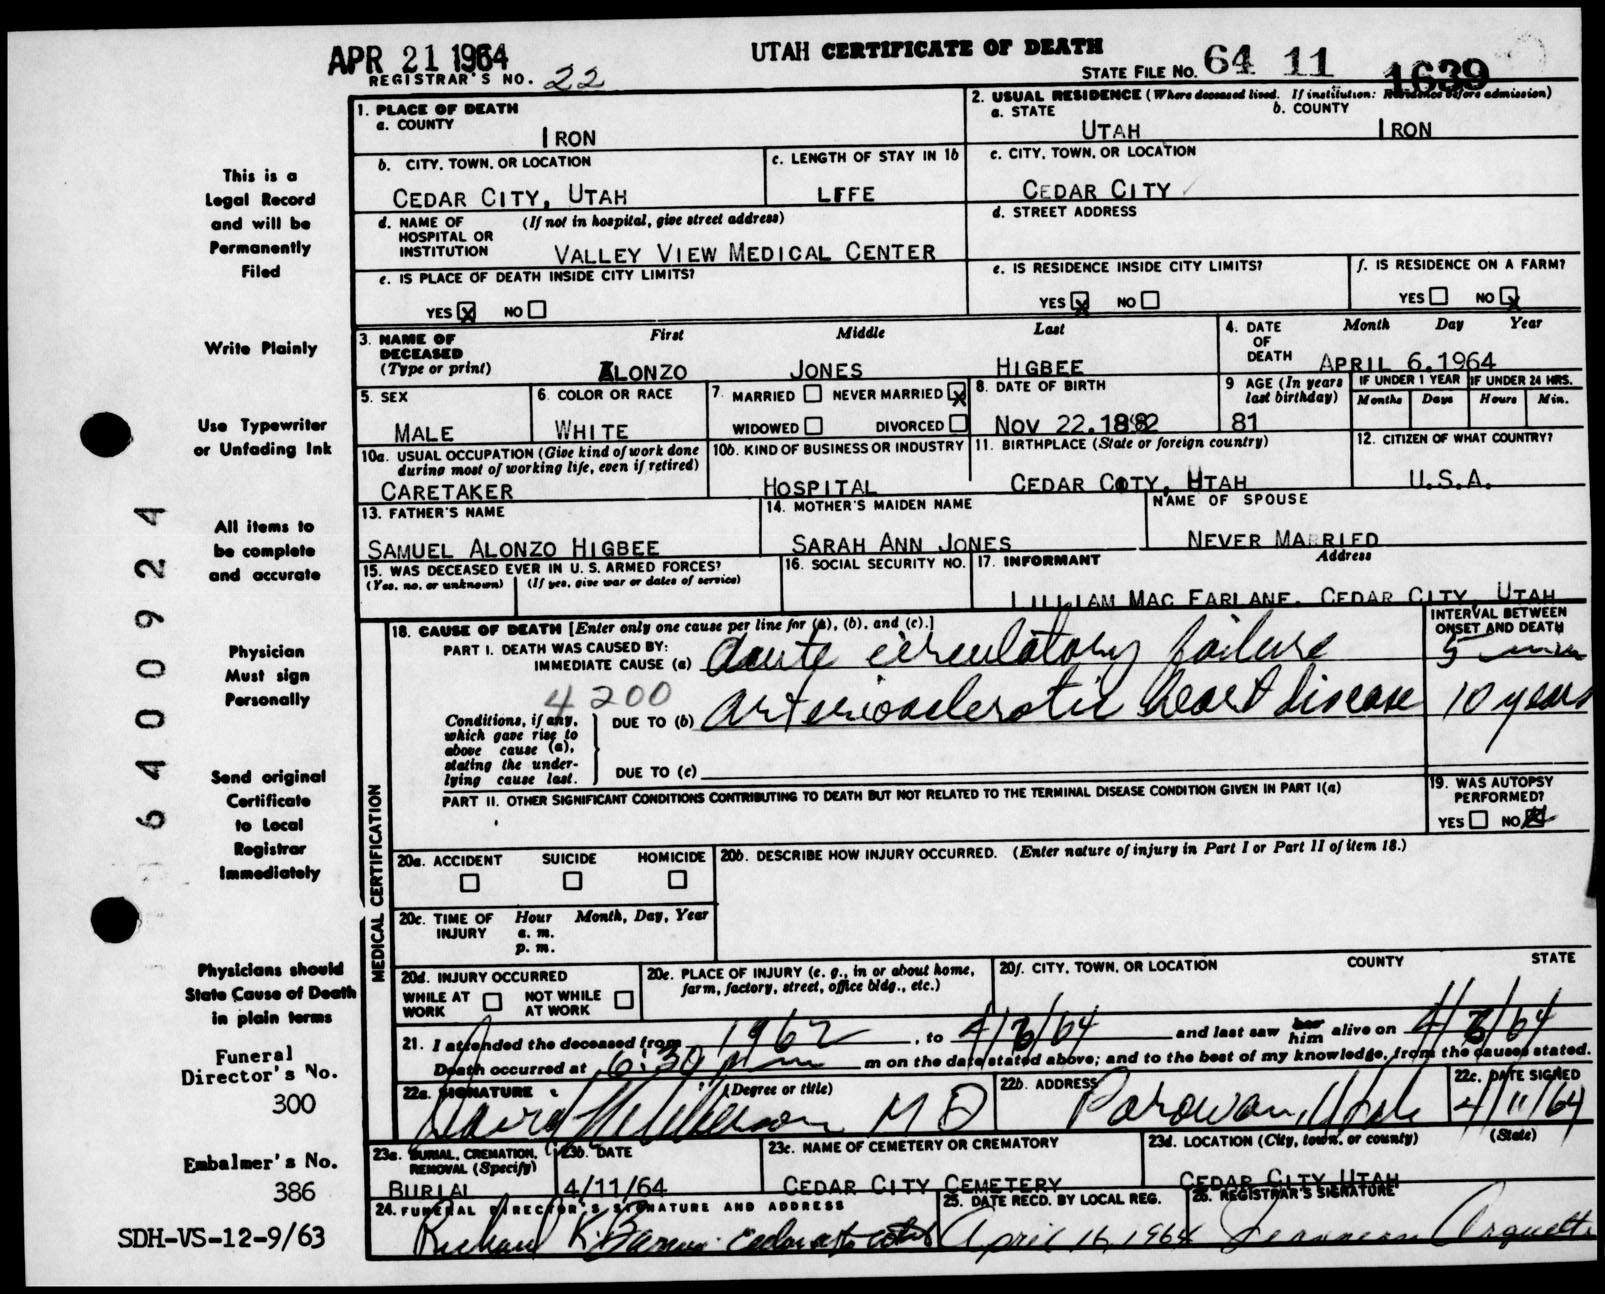 APR 21 1964
UTAH CERTIFICATE OF DEATH
REGISTRAR'S NO. 22
STATE FILE NO. 64 11 1639
1. PLACE OF DEATH
a. COUNTY
IRON
2. USUAL RESIDENCE (Where deceased lived. If institution: Residence before admission)
a. STATE
UTAH
b. COUNTY
IRON
b. CITY, TOWN, OR LOCATION
CEDAR CITY, UTAH
c. LENGTH OF STAY IN 1b
LFFE
c. CITY, TOWN, OR LOCATION
CEDAR CITY
d. NAME OF HOSPITAL OR INSTITUTION
(If not in hospital, give street address)
VALLEY VIEW MEDICAL CENTER
d. STREET ADDRESS
e. IS PLACE OF DEATH INSIDE CITY LIMITS?
YES X NO
e. IS RESIDENCE INSIDE CITY LIMITS?
YES X NO
f. IS RESIDENCE ON A FARM?
YES NO X
3. NAME OF DECEASED
(Type or print)
First Middle Last
ALONZO JONES HIGBEE
4. DATE OF DEATH
Month Day Year
APRIL 6.1964
5. SEX
MALE
6. COLOR OR RACE
WHITE
7. MARRIED NEVER MARRIED X
WIDOWED DIVORCED
8. DATE OF BIRTH
NOV 22.1882
9 AGE (In years last birthday)
81
IF UNDER 1 YEAR
Months Days
IF UNDER 24 HRS.
Hours Min.
10a. USUAL OCCUPATION (Give kind of work done during most of working life, even if retired)
CARETAKER
10b. KIND OF BUSINESS OR INDUSTRY
HOSPITAL
11. BIRTHPLACE (State or foreign country)
CEDAR CITY, UTAH
12. CITIZEN OF WHAT COUNTRY?
U.S.A.
13. FATHER'S NAME
SAMUEL ALONZO HIGBEE
14. MOTHER'S MAIDEN NAME
SARAH ANN JONES
NAME OF SPOUSE
NEVER MARRIED
15. WAS DECEASED EVER IN U. S. ARMED FORCES?
(Yes, no, or unknown) (If yes, give war or dates of service)
16. SOCIAL SECURITY NO.
17. INFORMANT Address
LILLIAM MAC FARLANE, CEDAR CITY, UTAH
MEDICAL CERTIFICATION
18. CAUSE OF DEATH [Enter only one cause per line for (a), (b), and (c).]
INTERVAL BETWEEN ONSET AND DEATH
PART I. DEATH WAS CAUSED BY:
IMMEDIATE CAUSE (a) Acute circulatory failure 5 min
4200
Conditions, if any, which gave rise to above cause (a), stating the underlying cause last.
DUE TO (b) Arteriosclerotic heart disease 10 years
DUE TO (c)
PART II. OTHER SIGNIFICANT CONDITIONS CONTRIBUTING TO DEATH BUT NOT RELATED TO THE TERMINAL DISEASE CONDITION GIVEN IN PART I(a)
19. WAS AUTOPSY PERFORMED?
YES NO X
20a. ACCIDENT SUICIDE HOMICIDE
20b. DESCRIBE HOW INJURY OCCURRED. (Enter nature of injury in Part I or Part II of item 18.)
20c. TIME OF INJURY
Hour Month, Day, Year
a. m.
p. m.
20d. INJURY OCCURRED
WHILE AT WORK NOT WHILE AT WORK
20e. PLACE OF INJURY (e. g., in or about home, farm, factory, street, office bldg., etc.)
20f. CITY, TOWN, OR LOCATION COUNTY STATE
21. I attended the deceased from 1962, to 4/6/64 and last saw her him alive on 4/6/64
Death occurred at 6:30 pm m on the date stated above; and to the best of my knowledge, from the causes stated.
22a. SIGNATURE (Degree or title)
M D
22b. ADDRESS
Parowan, Utah
22c. DATE SIGNED
4/11/64
23a. BURIAL, CREMATION, REMOVAL (Specify)
BURIAL
23b. DATE
4/11/64
23c. NAME OF CEMETERY OR CREMATORY
CEDAR CITY CEMETERY
23d. LOCATION (City, town, or county) (State)
CEDAR CITY UTAH
24. FUNERAL DIRECTOR'S SIGNATURE AND ADDRESS
Richard K.
25. DATE RECD. BY LOCAL REG.
April 16, 1964
26. REGISTRAR'S SIGNATURE
This is a
Legal Record
and will be
Permanently
Filed
Write Plainly
Use Typewriter
or Unfading Ink
All items to
be complete
and accurate
Physician
Must sign
Personally
Send original
Certificate
to Local
Registrar
Immediately
Physicians should
State Cause of Death
in plain terms
Funeral
Director's No.
300
Embalmer's No.
386
SDH-VS-12-9/63
6400924